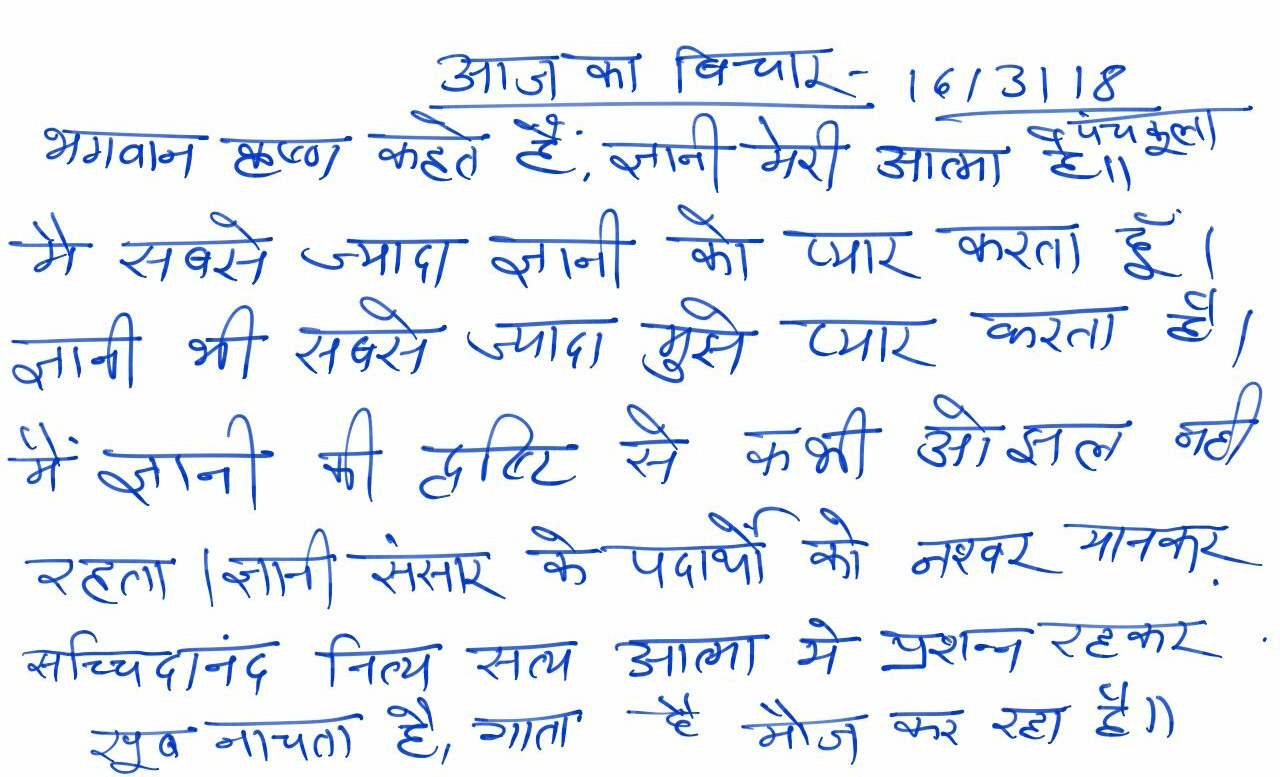 आज का बिचार - 16/3/18
पंचकूला
भगवान कृष्ण कहते हैं, ज्ञानी मेरी आत्मा है॥
मै सबसे ज्यादा ज्ञानी को प्यार करता हूँ।
ज्ञानी भी सबसे ज्यादा मुझे प्यार करता है।
मैं ज्ञानी की दृष्टि से कभी ओझल नही
रहता। ज्ञानी संसार के पदार्थों को नश्वर मानकर
सच्चिदानंद नित्य सत्य आत्मा मे प्रशन्न रहकर
खूब नाचता है, गाता है मौज कर रहा है॥